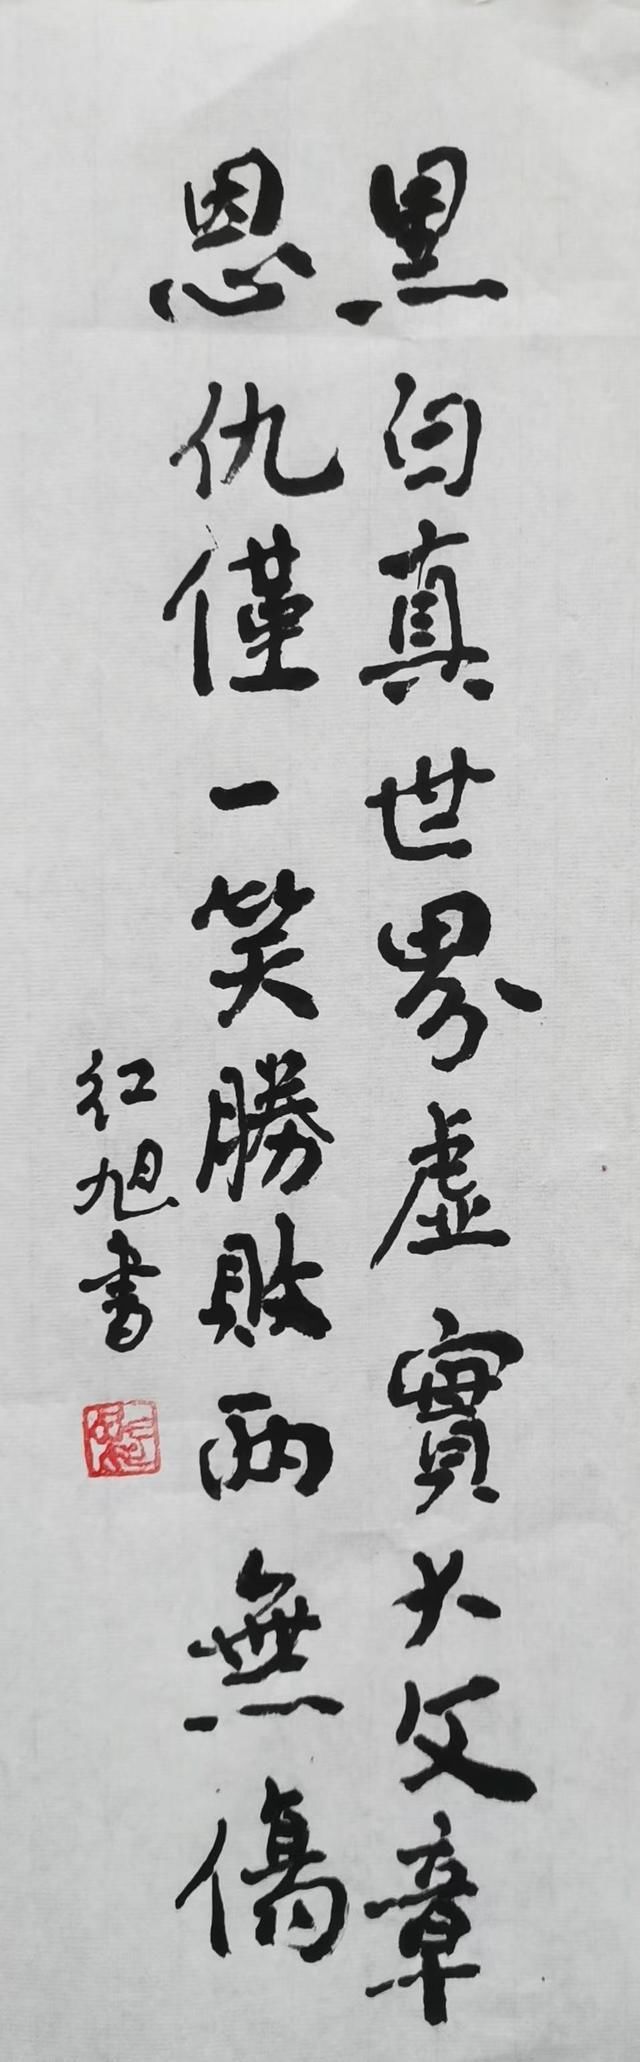 黑白真世界虛實大文章
恩仇僅一笑勝敗兩無傷
紅旭書